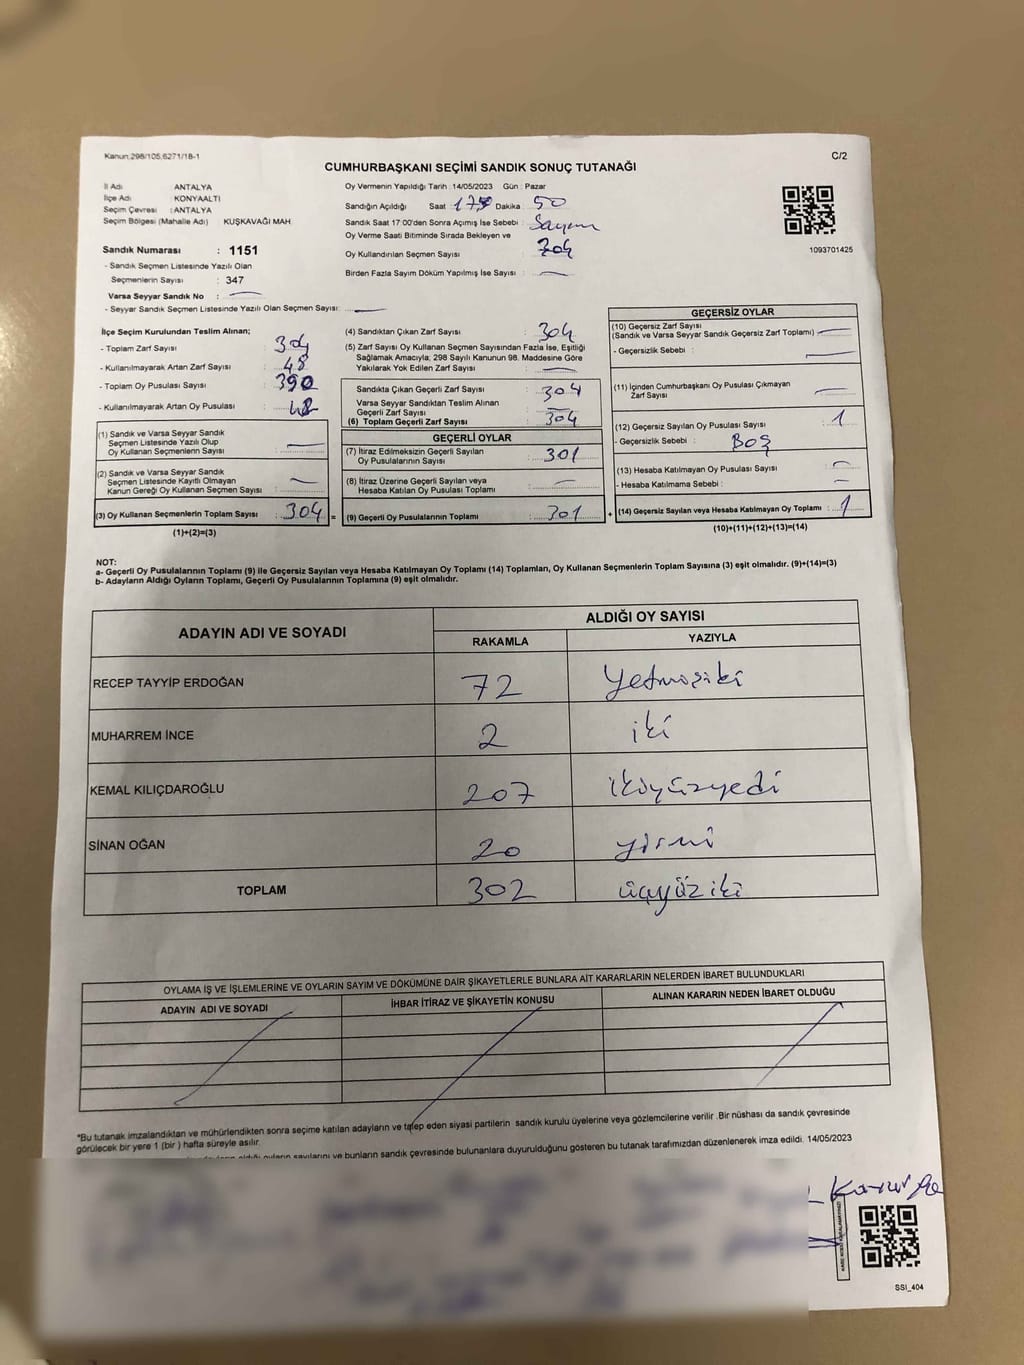 Kanun:298/105,6271/18-1
C/2
CUMHURBAŞKANI SEÇİMİ SANDIK SONUÇ TUTANAĞI
İl Adı ANTALYA
İlçe Adı KONYAALTI
Seçim Çevresi : ANTALYA
Seçim Bölgesi (Mahalle Adı) : KUŞKAVAĞI MAH
Sandık Numarası : 1151
- Sandık Seçmen Listesinde Yazılı Olan
Seçmenlerin Sayısı : 347
Varsa Seyyar Sandık No :
- Seyyar Sandık Seçmen Listesinde Yazılı Olan Seçmen Sayısı:
Oy Vermenin Yapıldığı Tarih :14/05/2023 Gün : Pazar
Sandığın Açıldığı Saat Dakika 50
Sandık Saat 17:00'den Sonra Açımış İse Sebebi : Sayım
Oy Verme Saati Bitiminde Sırada Bekleyen ve
Oy Kullandırılan Seçmen Sayısı : 304
Birden Fazla Sayım Döküm Yapılmış İse Sayısı :
1093701425
İlçe Seçim Kurulundan Teslim Alınan;
- Toplam Zarf Sayısı :
- Kullanılmayarak Artan Zarf Sayısı : 48
- Toplam Oy Pusulası Sayısı : 390
- Kullanılmayarak Artan Oy Pusulası : 48
(1) Sandık ve Varsa Seyyar Sandık
Seçmen Listesinde Yazılı Olup
Oy Kullanan Seçmenlerin Sayısı :
(2) Sandık ve Varsa Seyyar Sandık
Seçmen Listesinde Kayıtlı Olmayan
Kanun Gereği Oy Kullanan Seçmen Sayısı :
(3) Oy Kullanan Seçmenlerin Toplam Sayısı : 304 =
(1)+(2)=(3)
(4) Sandıktan Çıkan Zarf Sayısı : 304
(5) Zarf Sayısı Oy Kullanan Seçmen Sayısından Fazla İse, Eşitliği
Sağlamak Amacıyla; 298 Sayılı Kanunun 98. Maddesine Göre
Yakılarak Yok Edilen Zarf Sayısı :
Sandıkta Çıkan Geçerli Zarf Sayısı : 304
Varsa Seyyar Sandıktan Teslim Alınan
Geçerli Zarf Sayısı :
(6) Toplam Geçerli Zarf Sayısı : 304
GEÇERLİ OYLAR
(7) İtiraz Edilmeksizin Geçerli Sayılan
Oy Pusulalarının Sayısı : 301
(8) İtiraz Üzerine Geçerli Sayılan veya
Hesaba Katılan Oy Pusulası Toplamı :
(9) Geçerli Oy Pusulalarının Toplamı : 301 +
GEÇERSİZ OYLAR
(10) Geçersiz Zarf Sayısı
(Sandık ve Varsa Seyyar Sandık Geçersiz Zarf Toplamı) :
- Geçersizlik Sebebi :
(11) İçinden Cumhurbaşkanı Oy Pusulası Çıkmayan
Zarf Sayısı :
(12) Geçersiz Sayılan Oy Pusulası Sayısı : 1
- Geçersizlik Sebebi : BOŞ
(13) Hesaba Katılmayan Oy Pusulası Sayısı :
- Hesaba Katılmama Sebebi :
(14) Geçersiz Sayılan veya Hesaba Katılmayan Oy Toplamı : 1
(10)+(11)+(12)+(13)=(14)
NOT:
a- Geçerli Oy Pusulalarının Toplamı (9) ile Geçersiz Sayılan veya Hesaba Katılmayan Oy Toplamı (14) Toplamları, Oy Kullanan Seçmenlerin Toplam Sayısına (3) eşit olmalıdır. (9)+(14)=(3)
b- Adayların Aldığı Oyların Toplamı, Geçerli Oy Pusulalarının Toplamına (9) eşit olmalıdır.
ADAYIN ADI VE SOYADI ALDIĞI OY SAYISI
RAKAMLA YAZIYLA
RECEP TAYYİP ERDOĞAN 72 Yetmişiki
MUHARREM İNCE 2 iki
KEMAL KILIÇDAROĞLU 207 ikiyüzyedi
SİNAN OĞAN 20 yirmi
TOPLAM 302 üçyüziki
OYLAMA İŞ VE İŞLEMLERİNE VE OYLARIN SAYIM VE DÖKÜMÜNE DAİR ŞİKAYETLERLE BUNLARA AİT KARARLARIN NELERDEN İBARET BULUNDUKLARI
ADAYIN ADI VE SOYADI İHBAR İTİRAZ VE ŞİKAYETİN KONUSU ALINAN KARARIN NEDEN İBARET OLDUĞU
*Bu tutanak imzalandıktan ve mühürlendikten sonra seçime katılan adayların ve talep eden siyasi partilerin sandık kurulu üyelerine veya gözlemcilerine verilir .Bir nüshası da sandık çevresinde
görülecek bir yere 1 (bir ) hafta süreyle asılır.
oyların sayılarını ve bunların sandık çevresinde bulunanlara duyurulduğunu gösteren bu tutanak tarafımızdan düzenlenerek imza edildi. 14/05/2023
SSI_404